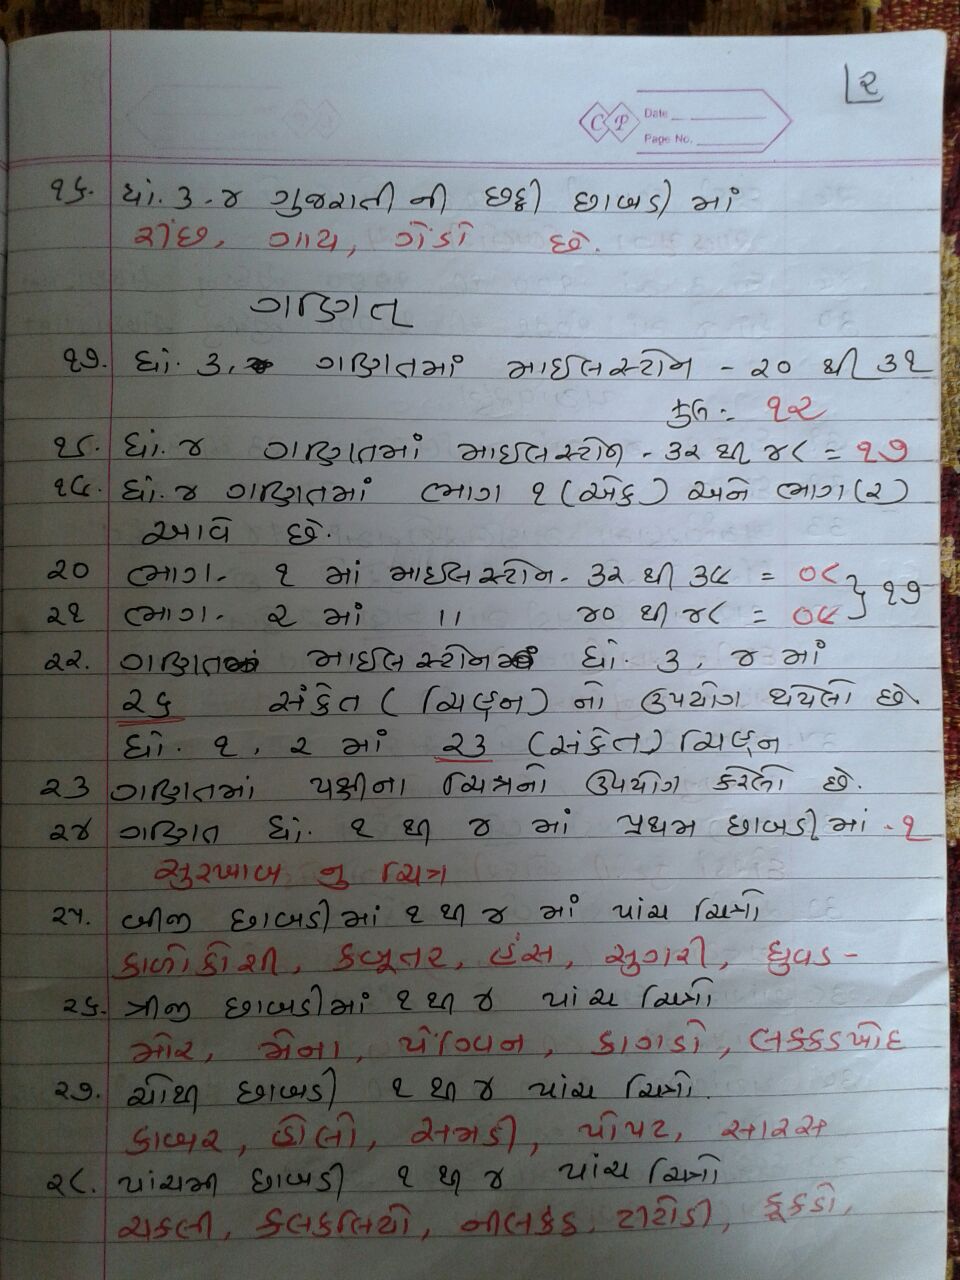 ૨
CP
Date
Page No.
૧૬. ધો. ૩.૪ ગુજરાતી ની છઠ્ઠી છાબડી માં
રીંછ, ગાય, ગેંડો છે.
ગણિત
૧૭. ધો. ૩. ગણિતમાં માઈલસ્ટોન - ૨૦ થી ૩૧
કુલ - ૧૨
૧૮. ધો. ૪ ગણિતમાં માઈલસ્ટોન - ૩૨ થી ૪૮ = ૧૭
૧૯. ધો. ૪ ગણિતમાં ભાગ ૧ (એક) અને ભાગ (૨)
આવે છે.
૨૦ ભાગ. ૧ માં માઈલસ્ટોન - ૩૨ થી ૩૯ = ૦૮ } ૧૭
૨૧ ભાગ. ૨ માં '' ૪૦ થી ૪૮ = ૦૯
૨૨. ગણિત માઈલસ્ટોન ધો. ૩, ૪ માં
૨૬ સંકેત (ચિહ્ન) નો ઉપયોગ થયેલો છે.
ધો. ૧, ૨ માં ૨૩ (સંકેત) ચિહ્ન
૨૩ ગણિતમાં પક્ષીના ચિત્રનો ઉપયોગ કરેલો છે.
૨૪ ગણિત ધો. ૧ થી ૪ માં પ્રથમ છાબડીમાં - ૧
સુરખાબ નુ ચિત્ર
૨૫. બીજી છાબડીમાં ૧ થી ૪ માં પાંચ ચિત્રો
કાળોકોશી, કબૂતર, હંસ, સુગરી, ઘુવડ -
૨૬. ત્રીજી છાબડીમાં ૧ થી ૪ પાંચ ચિત્રો
મોર, મેના, પેંગ્વિન, કાગડો, લક્કડખોદ
૨૭. ચોથી છાબડી ૧ થી ૪ પાંચ ચિત્રો.
કાબર, હોલો, સમડી, પોપટ, સારસ
૨૮. પાંચમી છાબડી ૧ થી ૪ પાંચ ચિત્રો
ચકલી, કલકલિયો, નીલકંઠ, ટીટોડી, કૂકડો,